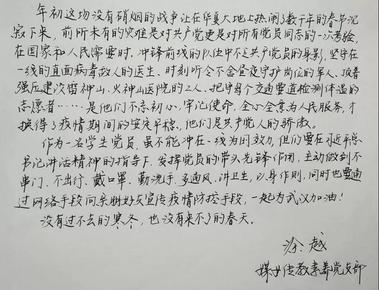 年初这场没有硝烟的战争让在华夏大地上热闹了数千年的春节沉
寂下来，前所未有的灾难是对共产党更是对所有党员同志的一次考验，
在国家和人民需要时，冲锋前线的队伍中不乏共产党员的身影，坚守在
一线的直面病毒救人的医生、时刻听令不会受守护岗位的军人、顶着
强压建设雷神山、火神山医院的工人、把守各个交通要道检测体温的
志愿者……是他们不忘初心、牢记使命，全心全意为人民服务，才
换得了疫情期间的安定平稳，他们是共产党人的骄傲。
作为一名学生党员，虽不能冲在一线为国效力，但仍要在习近平总
书记讲话精神的指导下，发挥党员的带头先锋作用，主动做到不
串门、不出行、戴口罩、勤洗手、多通风、讲卫生，以身作则，同时也要通
过网络手段向亲朋好友宣传疫情防控手段，一起为武汉加油！
没有过不去的寒冬，也没有来不了的春天。
涂越
媒体传教素养党支部